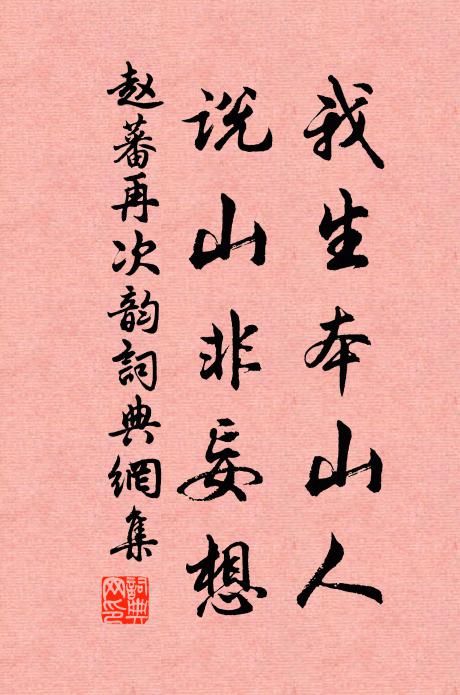 我生本山人
说山非妄想
赵蕃再次韵詞典網集
詞典网印